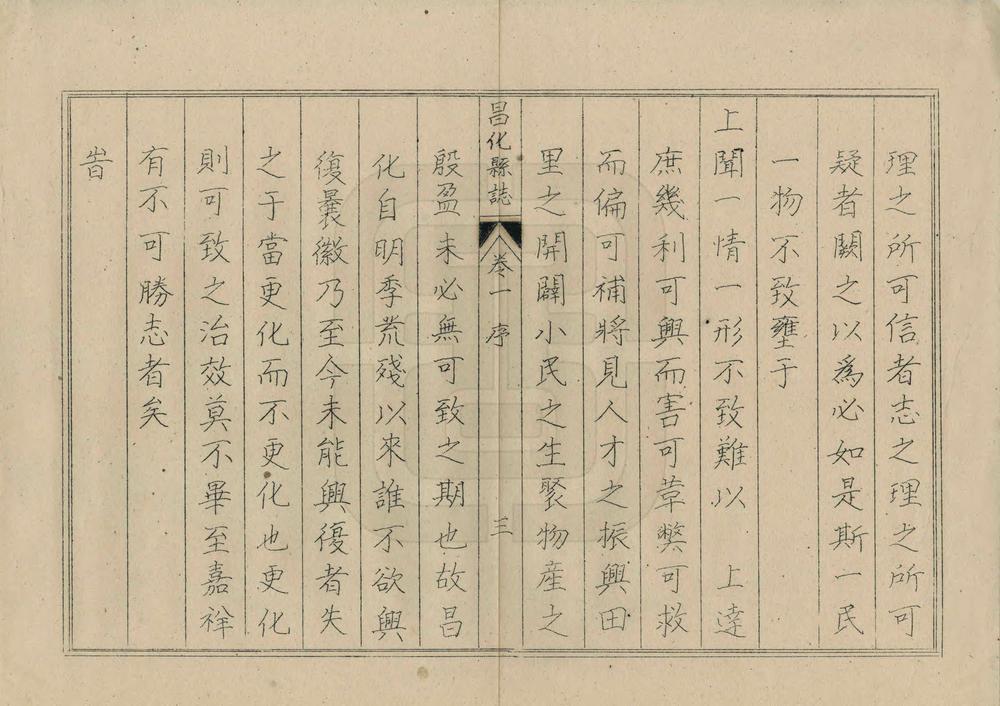 理之所可信者志之理之所可
疑者闕之以為必如是斯一民
一物不致壅于
上聞一情一形不致難以　上達
庶幾利可興而害可革獘可救
而偏可補將見人才之振興田
里之開闢小民之生聚物產之
昌化縣誌　卷一　序　三
殷盈未必無可致之期也故昌
化自明季荒殘以來誰不欲興
復曩徽乃至今未能興復者失
之于當更化而不更化也更化
則可致之治效莫不畢至嘉祥
有不可勝志者矣
旹